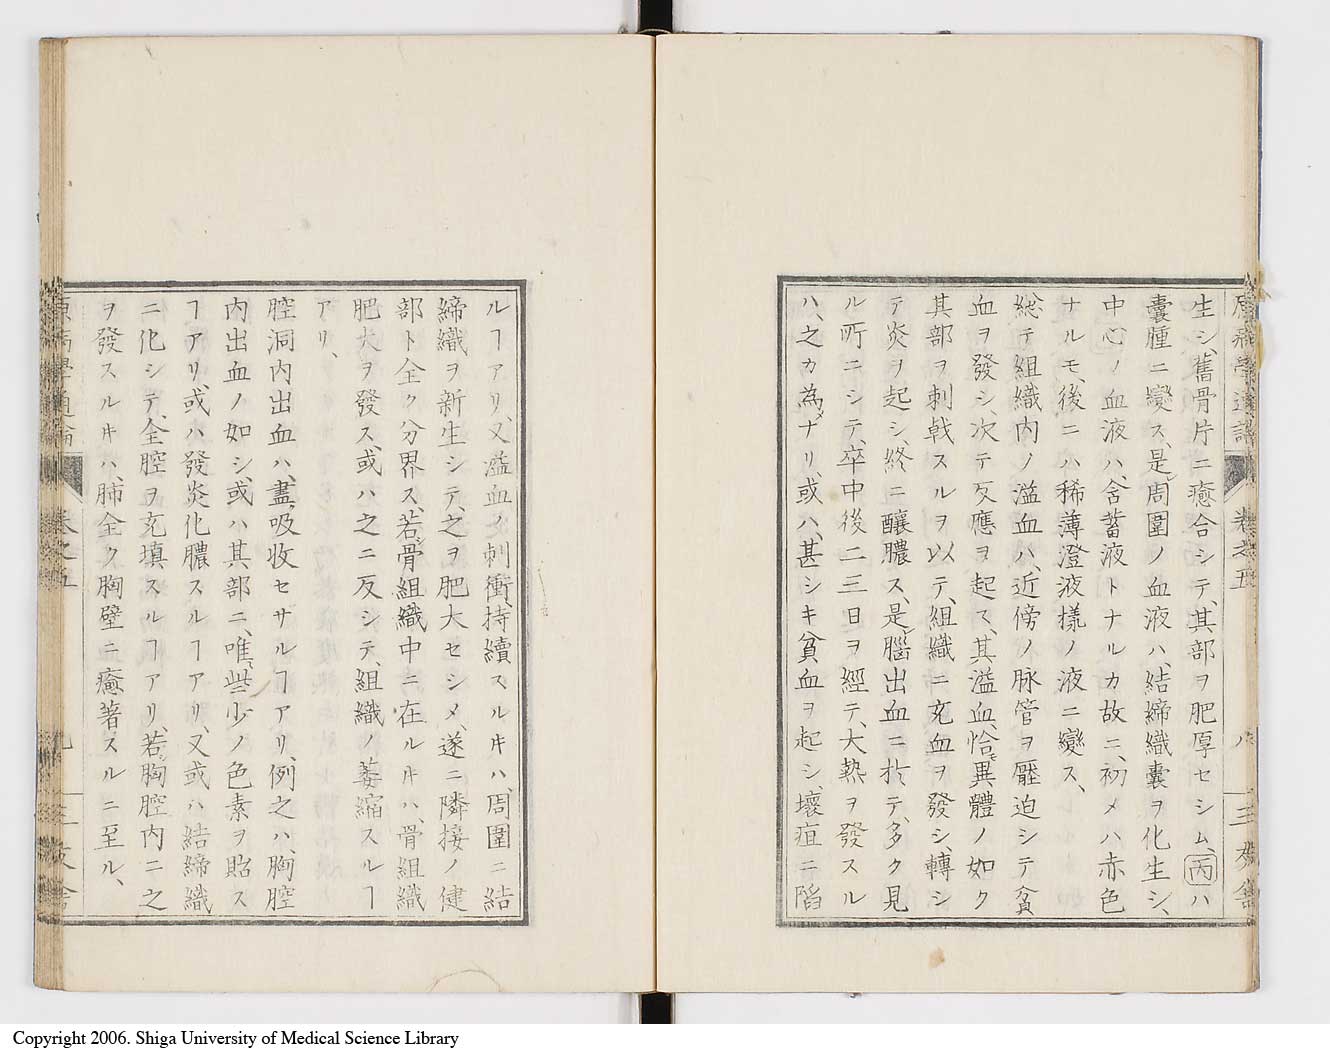 生シ、舊骨片ニ癒合シテ、其部ヲ肥厚セシム、丙ハ
囊腫ニ變ス、是レ周圍ノ血液ハ、結締織囊ヲ化生シ、
中心ノ血液ハ、含蓄液トナルカ故ニ、初メハ赤色
ナルモ、後ニハ稀薄澄液樣ノ液ニ變ス、
総テ組織内ノ溢血ハ、近傍ノ脉管ヲ壓迫シテ貧
血ヲ發シ、次テ反應ヲ起ス、其溢血、恰モ異體ノ如ク
其部ヲ刺戟スルヲ以テ、組織ニ充血ヲ發シ、轉シ
テ炎ヲ起シ、終ニ釀膿ス、是レ腦出血ニ於テ、多ク見
ル所ニシテ、卒中後二三日ヲ經テ、大熱ヲ發スル
ハ、之カ為メナリ、或ハ、甚シキ貧血ヲ起シ、壞疽ニ陷
ルヿアリ、又溢血ノ刺衝、持續スル𪜈ハ、周圍ニ結
締織ヲ新生シテ、之ヲ肥大セシメ、遂ニ隣接ノ健
部ト全ク分界ス、若シ骨組織中ニ在ルキハ、骨組織
肥大ヲ發ス、或ハ之ニ反シテ、組織ノ萎縮スルヿ
アリ、
腔洞内出血ハ、盡ク吸收セザルヿアリ、例之ハ、胸腔
内出血ノ如シ、或ハ其部ニ、唯些少ノ色素ヲ貽ス
ヿアリ、或ハ發炎化膿スルヿアリ、又或ハ結締織
ニ化シテ、全腔ヲ充填スルヿアリ、若シ胸腔内ニ之
ヲ發スルキハ、肺全ク胸壁ニ癒著スルニ至ル、
原病學通論
卷之五
Copyright 2006. Shiga University of Medical Science Library